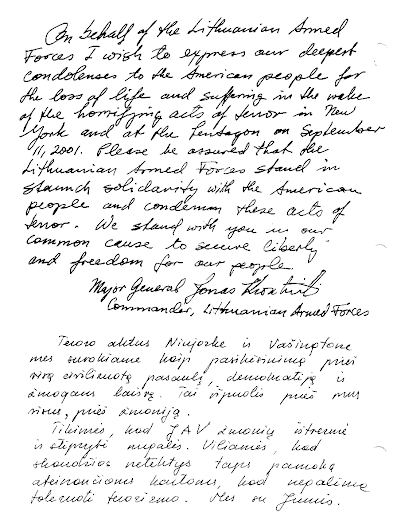 On behalf of the Lithuanian Armed
Forces I wish to express our deepest
condolenses to the American people for
the loss of life and suffering in the wake
of the horrifying acts of terror in New
York and at the Pentagon on September
11, 2001. Please be assured that the
Lithuanian Armed Forces stand in
staunch solidarity with the American
people and condemn these acts of
terror. We stand with you in our
common cause to secure liberty
and freedom for our people
Major General Jonas
Commander, Lithuanian Armed Forces
Teroro aktus Niujorke ir Vašingtone
mes suvokiame kaip pasikėsinimą prieš
visą civilizuotą pasaulį, demokratiją ir
žmogaus laisvę. Tai išpuolis prieš mus
visus, prieš žmoniją.
Tikimės, kad JAV žmonių ištvermė
ir stiprybė nugalės. Viliamės, kad
skaudžios netektys taps pamoka
ateinančioms kartoms, kad negalima
toleruoti terorizmo. Mes su Jumis.